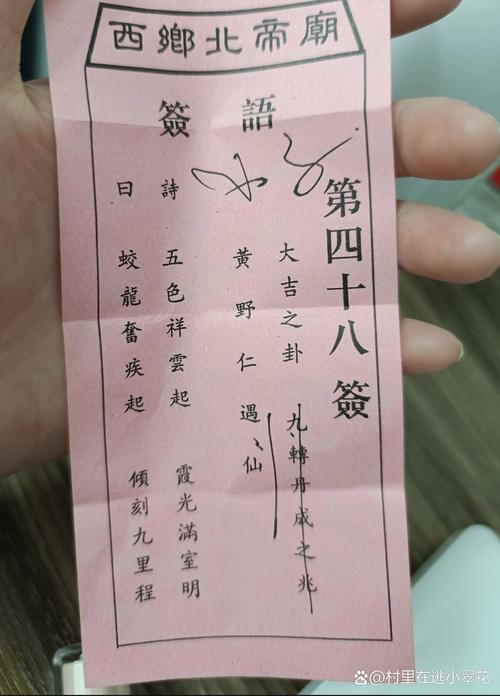 西鄉北帝廟
簽語
第四十八簽
大吉之卦 九轉丹成之兆
黃野仁遇仙
詩 五色祥雲起 霞光滿室明
曰 蛟龍奮疾起 傾刻九里程
@村里在逃小翠花